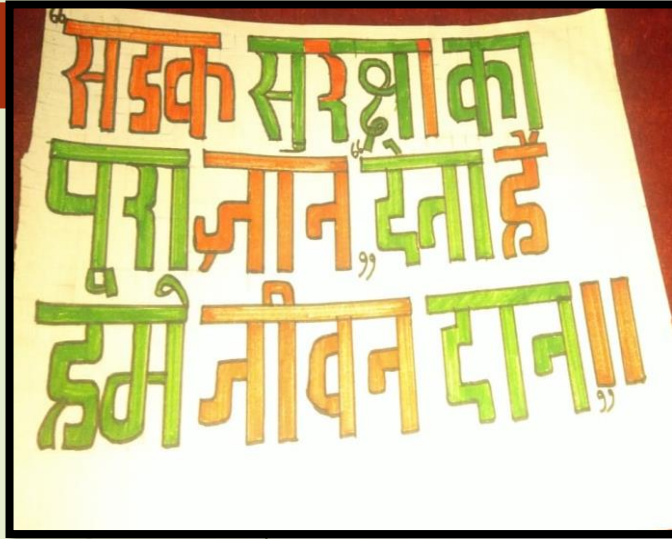 “सडक सुरक्षा का
पुरा ज्ञान„ “देना है
हमे जीवन दान॥„